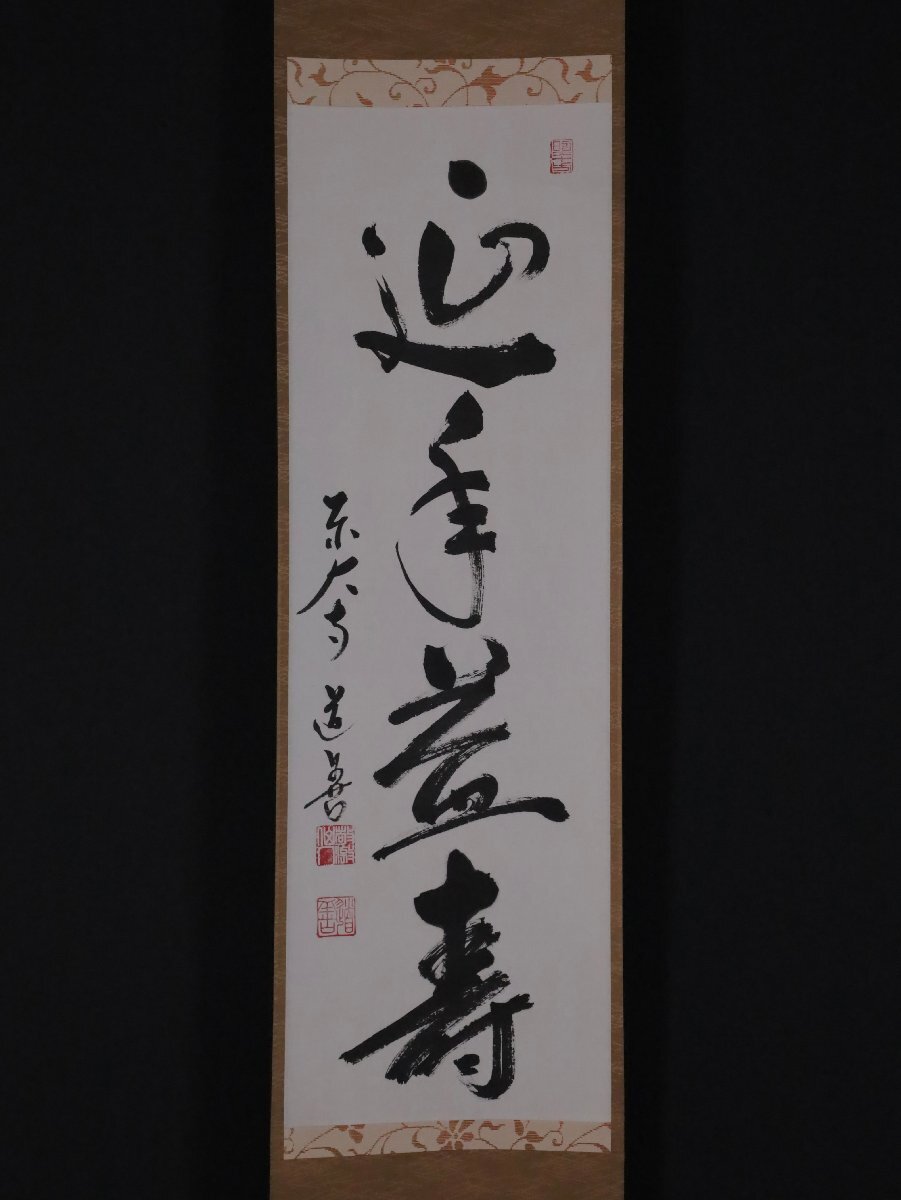 延年益壽
東大寺 道善